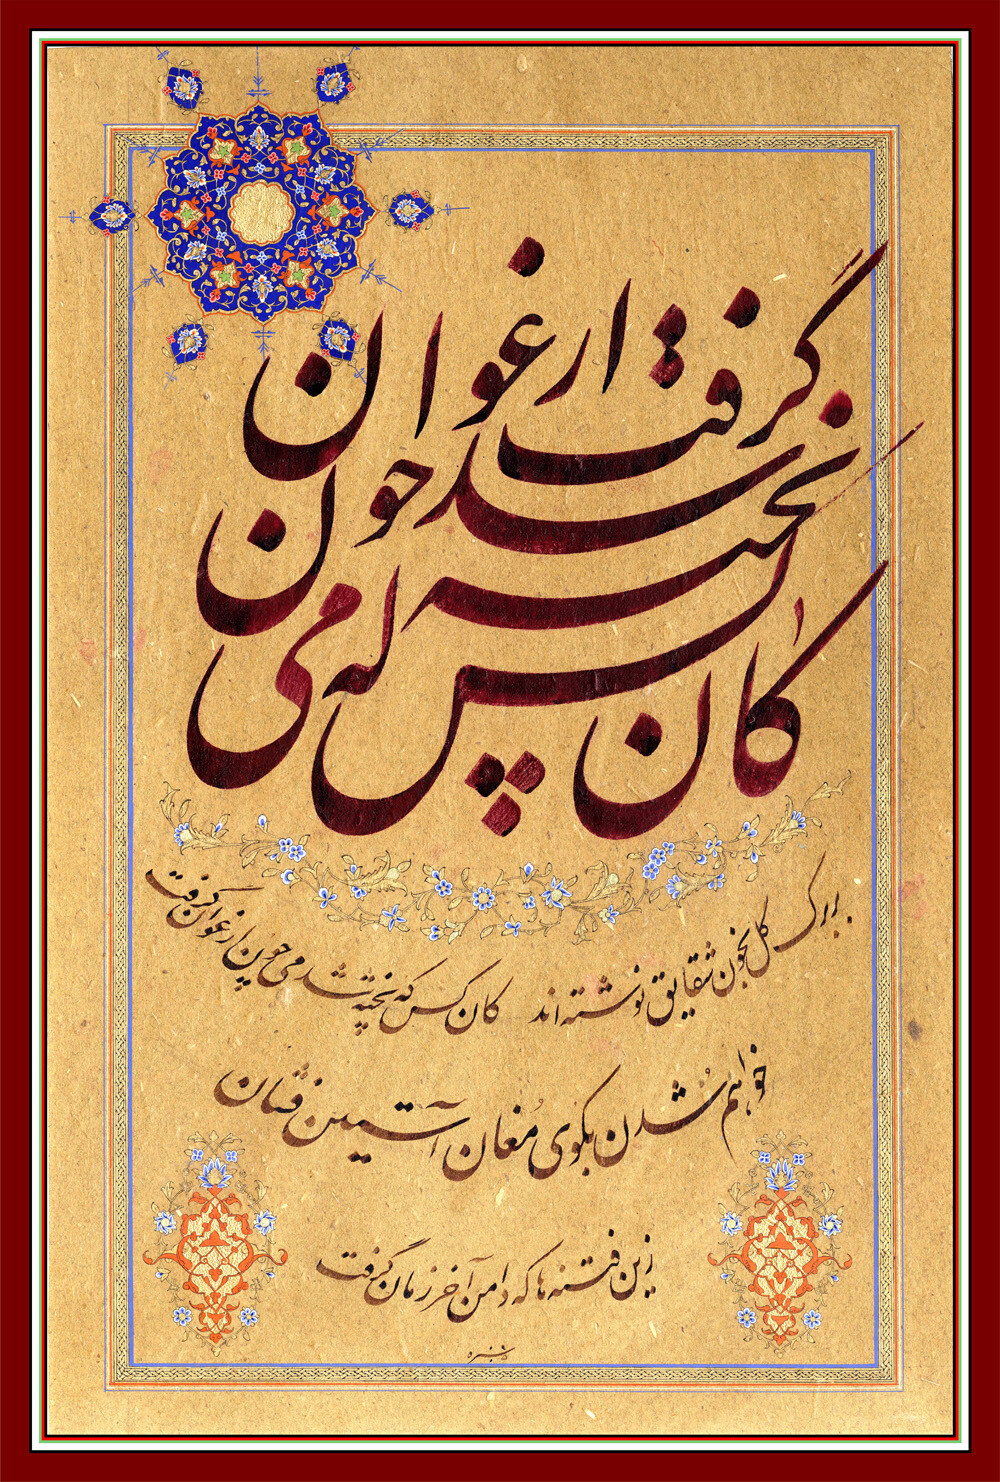 کان کس که پخته شد می چون ارغوان گرفت
بر برگ گل بخون شقایق نوشته اند کان کس که پخته شد می چون ارغوان گرفت
خواهم شدن بکوی مُغان آستین فشان
زین فتنه ها که دامن آخر زمان گرفت